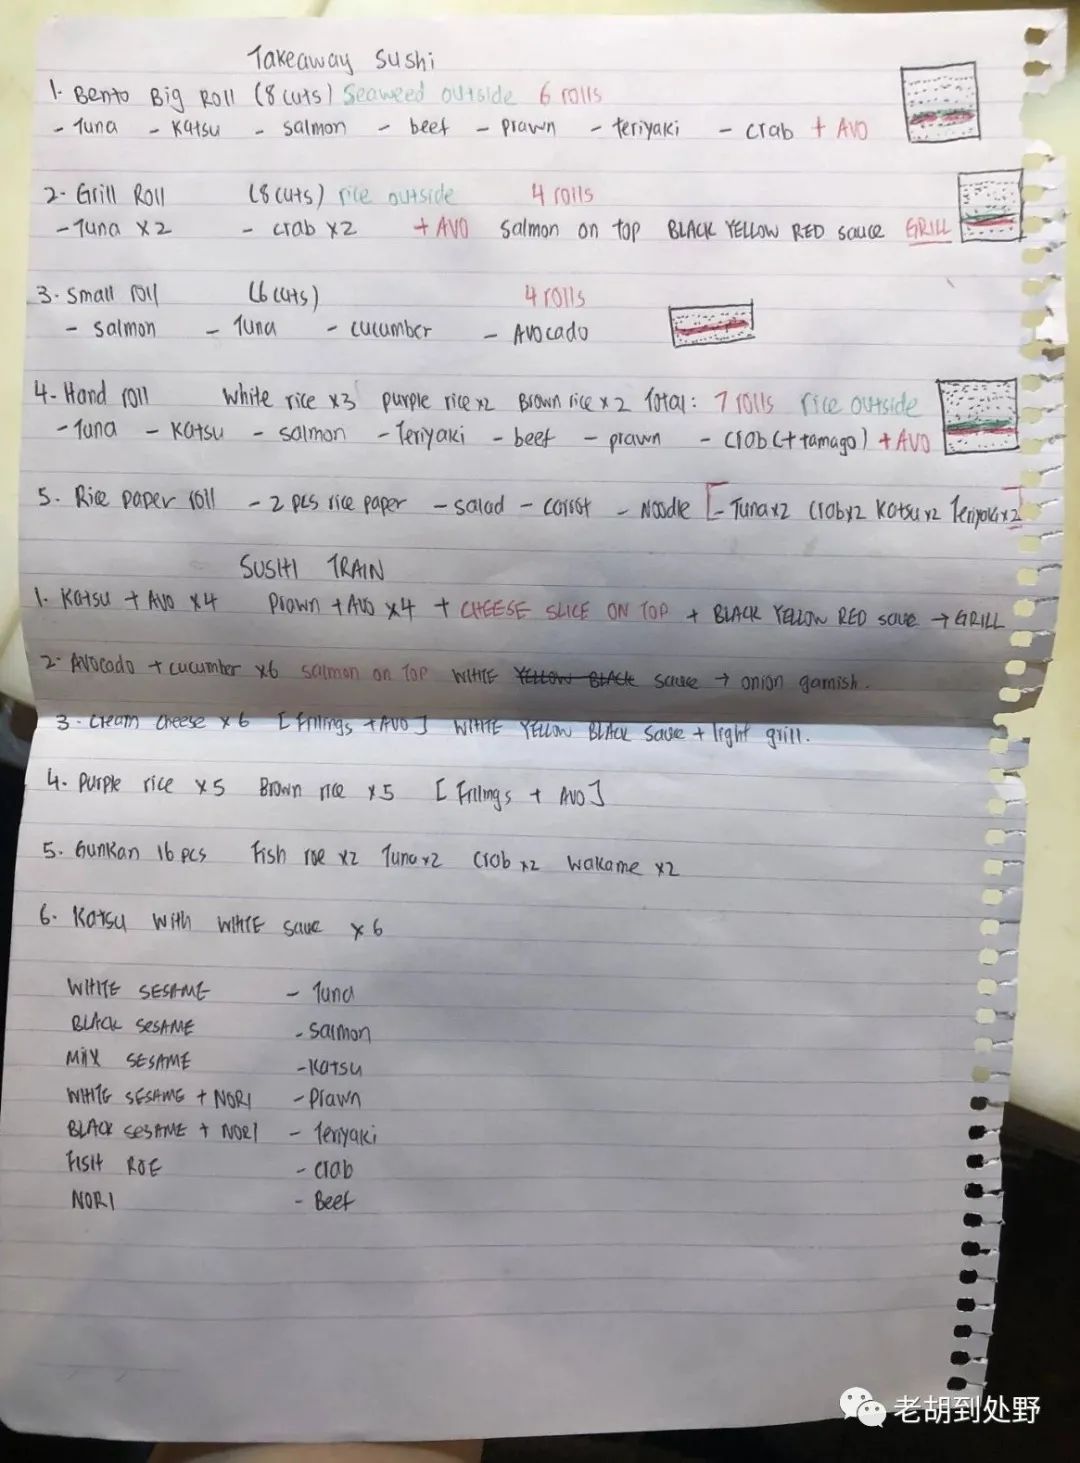 Takeaway Sushi
1. Bento Big Roll (8 cuts) Seaweed outside 6 rolls
- Tuna - Katsu - salmon - beef - prawn - teriyaki - crab + AVO
2. Grill Roll (8 cuts) rice outside 4 rolls
- Tuna x2 - crab x2 + AVO salmon on top BLACK YELLOW RED sauce GRILL
3. Small roll (6 cuts) 4 rolls
- salmon - Tuna - cucumber - Avocado
4. Hand roll white rice x3 purple rice x2 Brown rice x2 Total: 7 rolls rice outside
- Tuna - Katsu - salmon - Teriyaki - beef - prawn - crab (+ tamago) + AVO
5. Rice paper roll - 2 pcs rice paper - salad - carrot - Noodle [- Tuna x2 crab x2 Katsu x2 Teriyaki x2]
SUSHI TRAIN
1. Katsu + AVO x4 Prawn + AVO x4 + CHEESE SLICE ON TOP + BLACK YELLOW RED sauce → GRILL
2. Avocado + cucumber x6 salmon on TOP WHITE YELLOW BLACK sauce → onion garnish.
3. cream cheese x 6 [Fillings + AVO] WHITE YELLOW BLACK sauce + light grill.
4. Purple rice x5 Brown rice x5 [Fillings + AVO]
5. Gunkan 16 pcs Fish roe x2 Tuna x2 Crab x2 Wakame x2
6. Katsu with WHITE sauce x 6
WHITE SESAME - Tuna
BLACK SESAME - Salmon
MIX SESAME - Katsu
WHITE SESAME + NORI - Prawn
BLACK SESAME + NORI - Teriyaki
FISH ROE - crab
NORI - Beef
老胡到处野